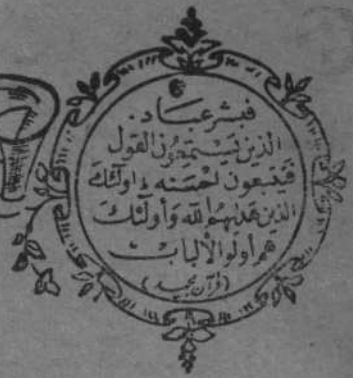 فبشر عباد.
الذين يستمعون القول
فيتبعون احسنه اولئك
الذين هداهم الله وأولئك
هم أولو الألباب
(قرآن مجيد)